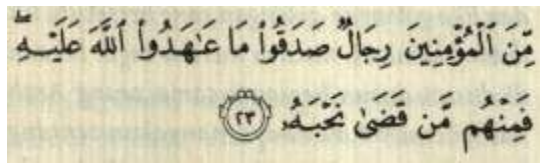 مِّنَ ٱلْمُؤْمِنِينَ رِجَالٌ صَدَقُوا۟ مَا عَـٰهَدُوا۟ ٱللَّهَ عَلَيْهِ ۖ
فَمِنْهُم مَّن قَضَىٰ نَحْبَهُۥ ٢٣